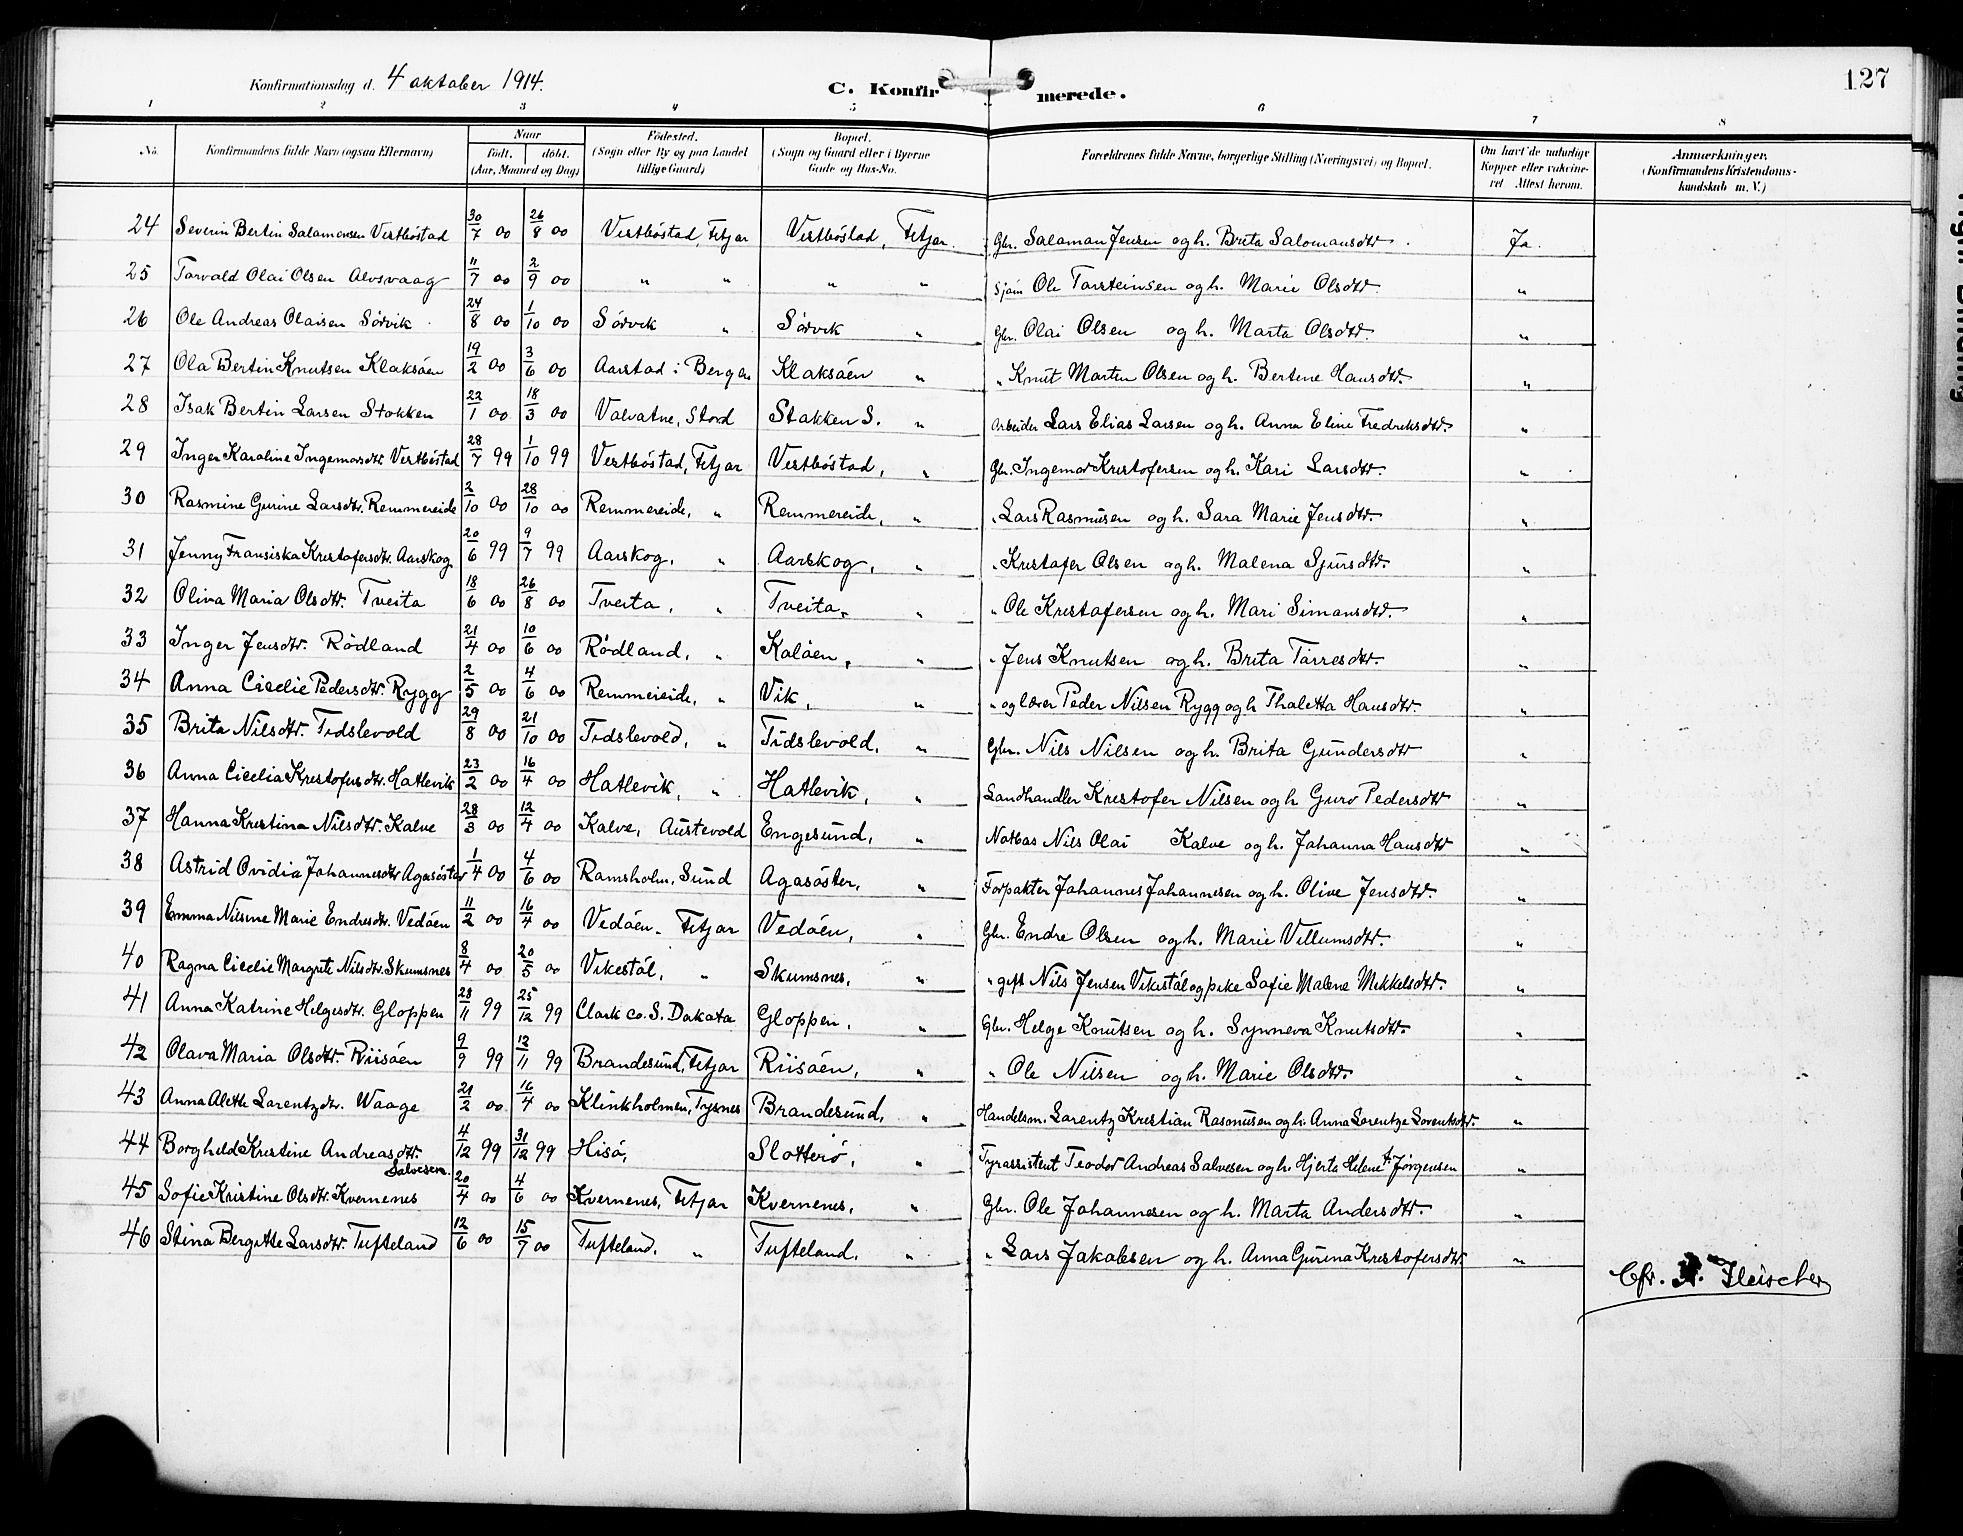 Konfirmationsdag d. 4 oktober 1914.
C. Konfirmerede.
127
1 2 3 4 5 6 7 8
No. | Konfirmandens fulde Navn (ogsaa Efternavn) | Naar født. døbt. (Aar, Maaned og Dag) | Fødested. (Sogn eller By og paa Landet tillige Gaard) | Bopæl. (Sogn og Gaard eller i Byerne Gade og Hus-No. | Forældrenes fulde Navne, borgerlige Stilling (Næringsvei) og Bopæl. | Om havt de naturlige Kopper eller vakcineret. Attest herom. | Anmærkninger. (Konfirmandens Kristendomskundskab m. V.)
24 Severin Bertin Salamonsen Vestbøstad 30/7 00 26/8 00 Vestbøstad, Fitjar Vestbøstad, Fitjar. Gbr. Salaman Jensen og h. Brita Salomansdtr. Ja.
25 Torvald Olai Olsen Alvsvaag 11/7 00 2/9 00 " " " " Sjøm Ole Torsteinsen og h. Marie Olsdtr. "
26 Ole Andreas Olaisen Sørvik 24/8 00 1/10 00 Sørvik " Sørvik " Gbr. Olai Olsen og h. Marta Olsdtr. "
27 Ola Bertin Knutsen Klaksøen 19/2 00 3/6 00 Aarstad i Bergen Klaksøen " " Knut Martin Olsen og h. Bertine Hansdtr. "
28 Isak Bertin Larsen Stokken 22/1 00 18/3 00 Valvatne, Stord Stakken S. " Arbeider Lars Elias Larsen og h. Anna Eline Fredriksdtr. "
29 Inger Karoline Ingemarsdtr Vestbøstad 28/7 99 1/10 99 Vestbøstad, Fitjar Vestbøstad, " Gbr. Ingemar Kristofersen og h. Kari Larsdtr. "
30 Rasmine Gurine Larsdtr. Remmereide 2/10 00 28/10 00 Remmereide, " Remmereide, " " Lars Rasmusen og h. Sara Marie Jensdtr. "
31 Jenny Fransiska Kristofersdtr. Aarskog 20/6 99 9/7 99 Aarskog, " Aarskog, " " Kristofer Olsen og h. Malena Sjursdtr. "
32 Oliva Maria Olsdtr. Tveita 18/6 00 26/8 00 Tveita, " Tveita, " " Ole Kristofersen og h. Mari Simansdtr "
33 Inger Jensdtr. Rødland 21/4 00 10/6 00 Rødland, " Kaløen, " " Jens Knutsen og h. Brita Tørresdtr. "
34 Anna Cicelie Pedersdtr. Rygg 2/5 00 4/6 00 Remmereide, " Vik, " " og lærer Peder Nilsen Rygg og h Thaletta Hansdtr. "
35 Brita Nilsdtr. Tidslevold 29/8 00 21/10 00 Tidslevold, " Tidslevold, " Gbr. Nils Nilsen og h. Brita Gundersdtr "
36 Anna Cicelia Kristofersdtr. Hatlevik 23/2 00 16/4 00 Hatlevik, " Hatlevik, " Landhandler Kristofer Nilsen og h Guro Pedersdtr "
37 Hanna Kristina Nilsdtr. Kalve 28/3 00 12/4 00 Kalve, Austevold Engesund, " Notbas Nils Olai Kalve og h. Johanna Hansdtr "
38 Astrid Ovidia Johannesdtr Agasøster 1/4 00 4/6 00 Ramsholm, Sund Agasøster, " Forpakter Johannes Johannesen og h. Olive Jensdtr. "
39 Emma Nilsine Marie Endresdtr. Vedøen 11/2 00 16/4 00 Vedøen, Fitjar Vedøen, " Gbr. Endre Olsen og h. Marie Villumsdtr. "
40 Ragna Cicelie Margrete Nilsdtr. Skumsnes 8/4 00 20/5 00 Vikestøl, " Skumsnes, " " gift Nils Jensen Vikestøl og pike Sofie Malene Mikkelsdtr. "
41 Anna Katrine Helgesdtr. Gloppen 28/11 99 25/12 99 Clark co. S. Dakota Gloppen, " Gbr. Helge Knutsen og h. Synneva Knutsdtr. "
42 Olava Maria Olsdtr. Riisøen 9/9 99 12/11 99 Brandesund, Fitjar Riisøen, " " Ole Nilsen og h. Marie Olsdtr. "
43 Anna Alette Larentzdtr. Waage 21/2 00 16/4 00 Klinkholmen, Tysnes Brandesund, " Handelsm. Larentz Kristian Rasmusen og h. Anna Larentze Lorentsdtr. "
44 Borghild Kristine Andreasdtr. Salvesen 4/12 99 31/12 99 Hisø, Slotterø, " Fyrassistent Teodor Andreas Salvesen og h. Hjerte Helene f. Jørgensen "
45 Sofie Kristine Olsdtr. Kvernenes 20/4 00 4/6 00 Kvernenes, Fitjar Kvernenes, " Gbr. Ole Johannesen og h. Marta Andersdtr. "
46 Stina Bergitte Larsdtr. Tufteland 12/6 00 15/7 00 Tufteland, " Tufteland, " " Lars Jakobsen og h. Anna Gurina Kristofersdtr. "
Chr. Fleischer